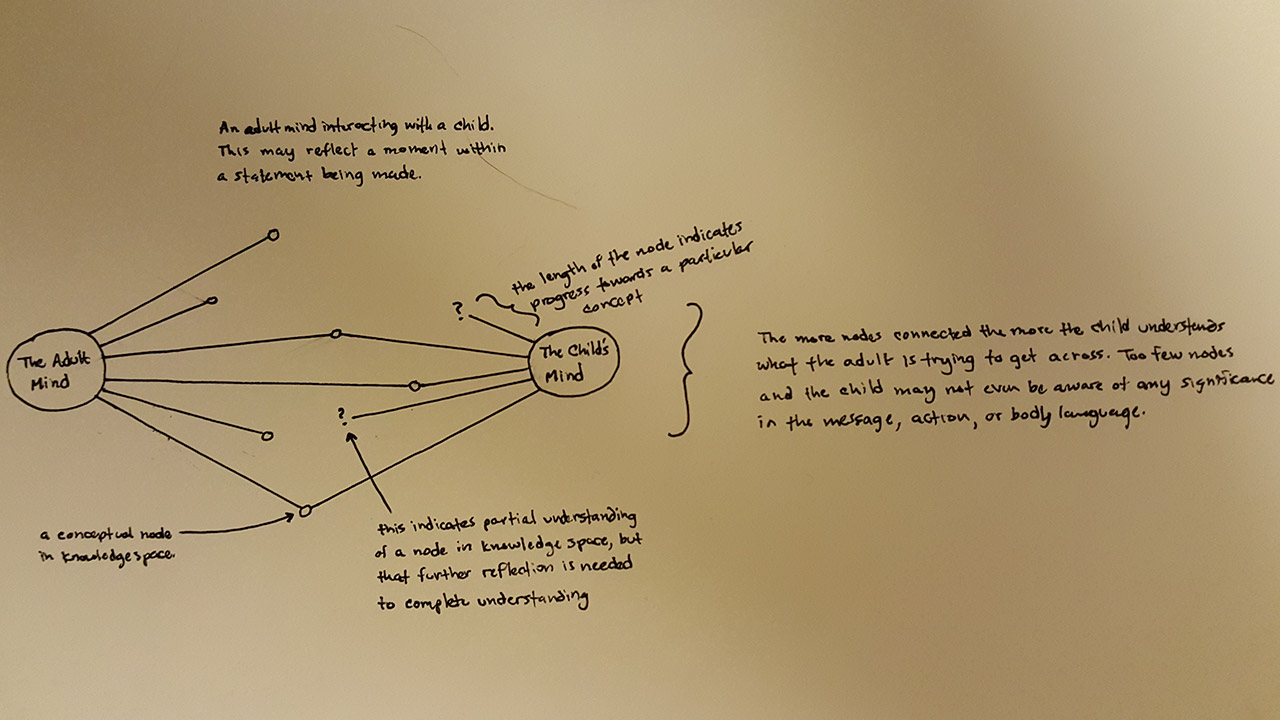 An adult mind interacting with a child.
This may reflect a moment within
a statement being made.
the length of the node indicates
progress towards a particular
concept
?
The Adult
Mind
The Child's
Mind
The more nodes connected the more the child understands
what the adult is trying to get across. Too few nodes
and the child may not even be aware of any significance
in the message, action, or body language.
?
a conceptual node
in knowledge space.
this indicates partial understanding
of a node in knowledge space, but
that further reflection is needed
to complete understanding